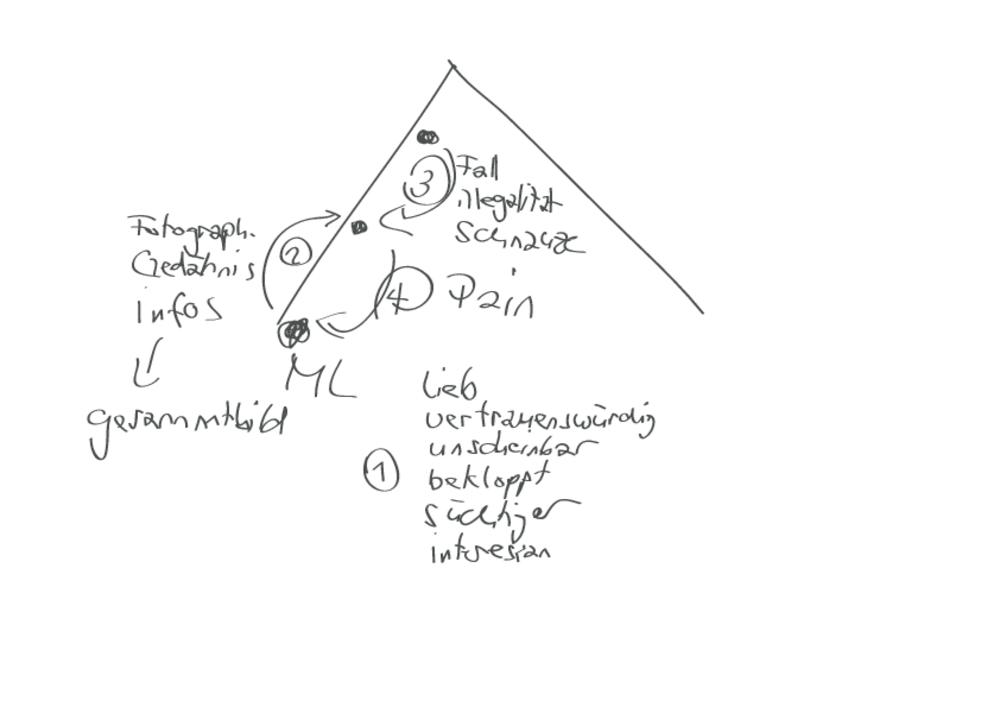 3
Fall
illegalität
Schnauze
Fotograph.
Gedähnis
infos
2
4
Pain
ML
gesammtbild
1
lieb
vertrauenswürdig
unscheinbar
bekloppt
süchtiger